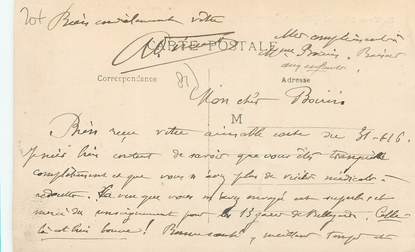 Bien cordialement votre
Mes compliments à
Mme Boivin. Baisers
aux enfants.
CARTE POSTALE
Correspondance
Adresse
Mon cher Boivin
M
Bien reçu votre aimable carte du
Je suis très content de savoir que vous êtes tranquille
complètement et que vous n'avez plus de visites médicales à
redouter. La vue que vous m'avez envoyé est superbe et
merci du renseignement pour le 13 gare de Bellegarde. Celle
là est très bonne! Bonne santé, meilleur temps et